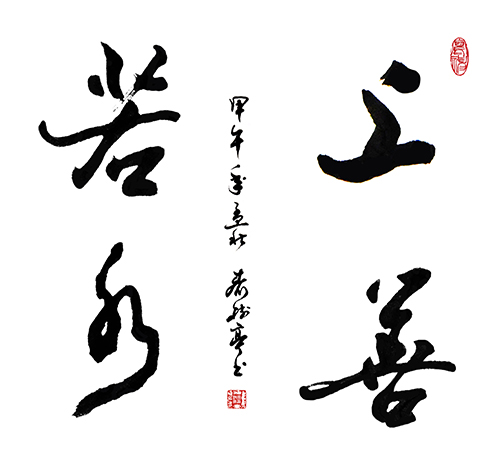 上善
若水
甲午年孟秋